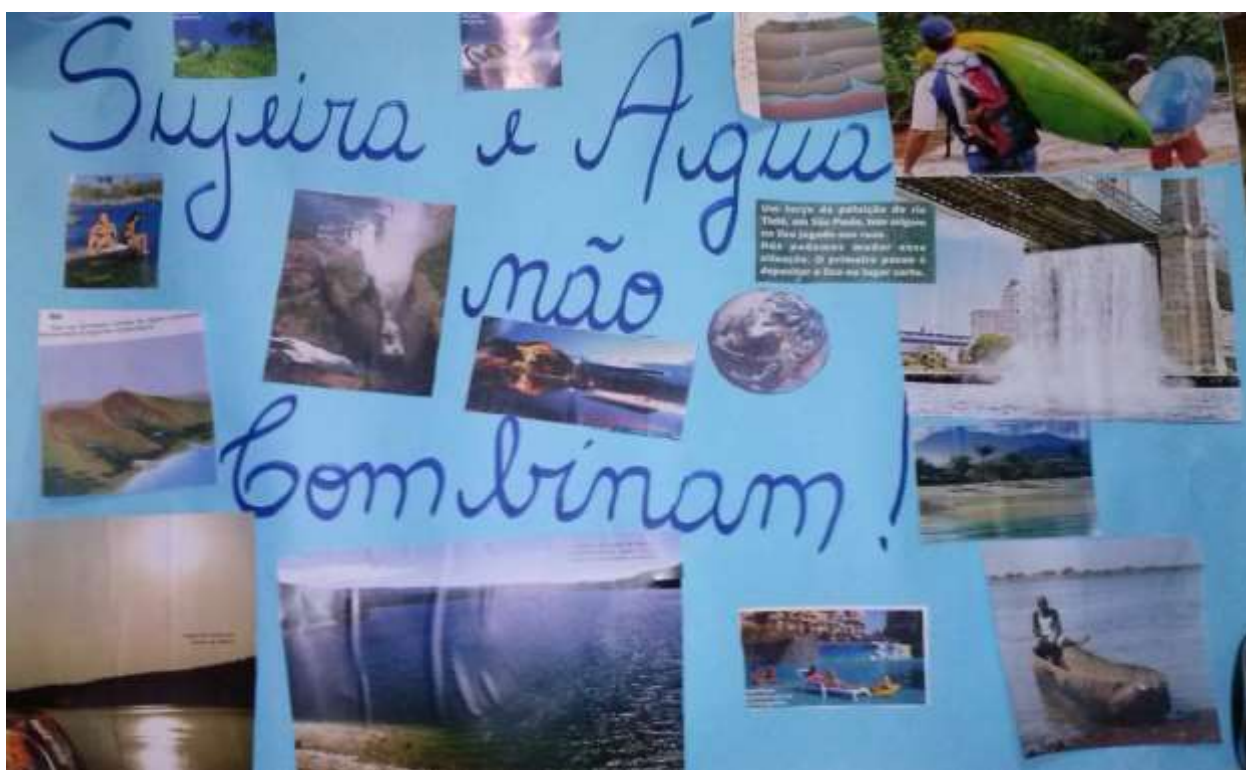 Sujeira e Água
Um terço da poluição do rio
Tietê, em São Paulo, tem origem
no lixo jogado nas ruas.
Nós podemos mudar essa
situação. O primeiro passo é
depositar o lixo no lugar certo.
não
Combinam!